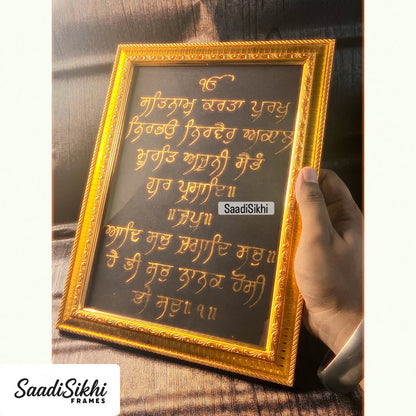 ੴ
ਸਤਿਨਾਮੁ ਕਰਤਾ ਪੁਰਖੁ
ਨਿਰਭਉ ਨਿਰਵੈਰੁ ਅਕਾਲ
ਮੂਰਤਿ ਅਜੂਨੀ ਸੈਭੰ
ਗੁਰ ਪ੍ਰਸਾਦਿ॥
SaadiSikhi
॥ਜਪੁ॥
ਆਦਿ ਸਚੁ ਜੁਗਾਦਿ ਸਚੁ॥
ਹੈ ਭੀ ਸਚੁ ਨਾਨਕ ਹੋਸੀ
ਭੀ ਸਚੁ॥੧॥
SaadiSikhi
FRAMES